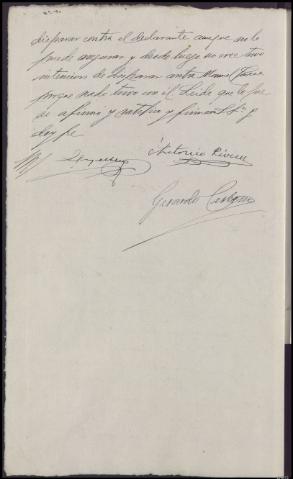 disparar contra el declarante aunque no lo
puede asegurar y desde luego no cree tuvo
intencion de disparar contra
porque nada tuvo con él. Leido que le fue
se afirma y ratifica y firma con S. Sª y
doy fe
Antonio Rivera
Gerardo